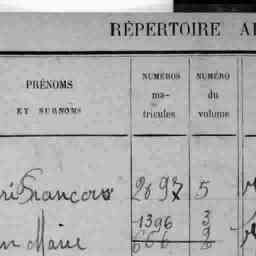 RÉPERTOIRE AL
PRÉNOMS
ET SURNOMS
NUMÉROS
ma-
tricules
NUMÉRO
du
volume
François 2897 5
1396 3
Marie 666 2